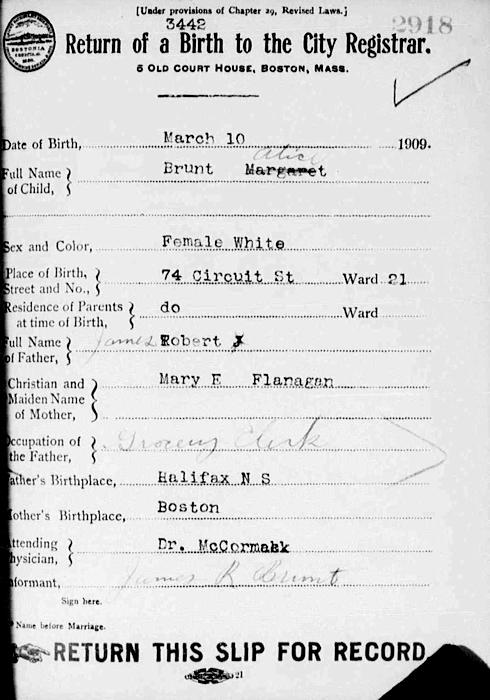 [Under provisions of Chapter 29, Revised Laws.]
3442
2918
Return of a Birth to the City Registrar.
6 OLD COURT HOUSE, BOSTON, MASS.
Date of Birth, March 10 1909.
Alice
Full Name of Child, Brunt Margaret
Sex and Color, Female White
Place of Birth, Street and No., 74 Circuit St Ward 21
Residence of Parents at time of Birth, do Ward
Full Name of Father, James Robert J
Christian and Maiden Name of Mother, Mary E Flanagan
Occupation of the Father, Grocery Clerk
Father's Birthplace, Halifax N S
Mother's Birthplace, Boston
Attending Physician, Dr. McCormack
Informant, James R Brunt
Sign here.
* Name before Marriage.
RETURN THIS SLIP FOR RECORD.
21